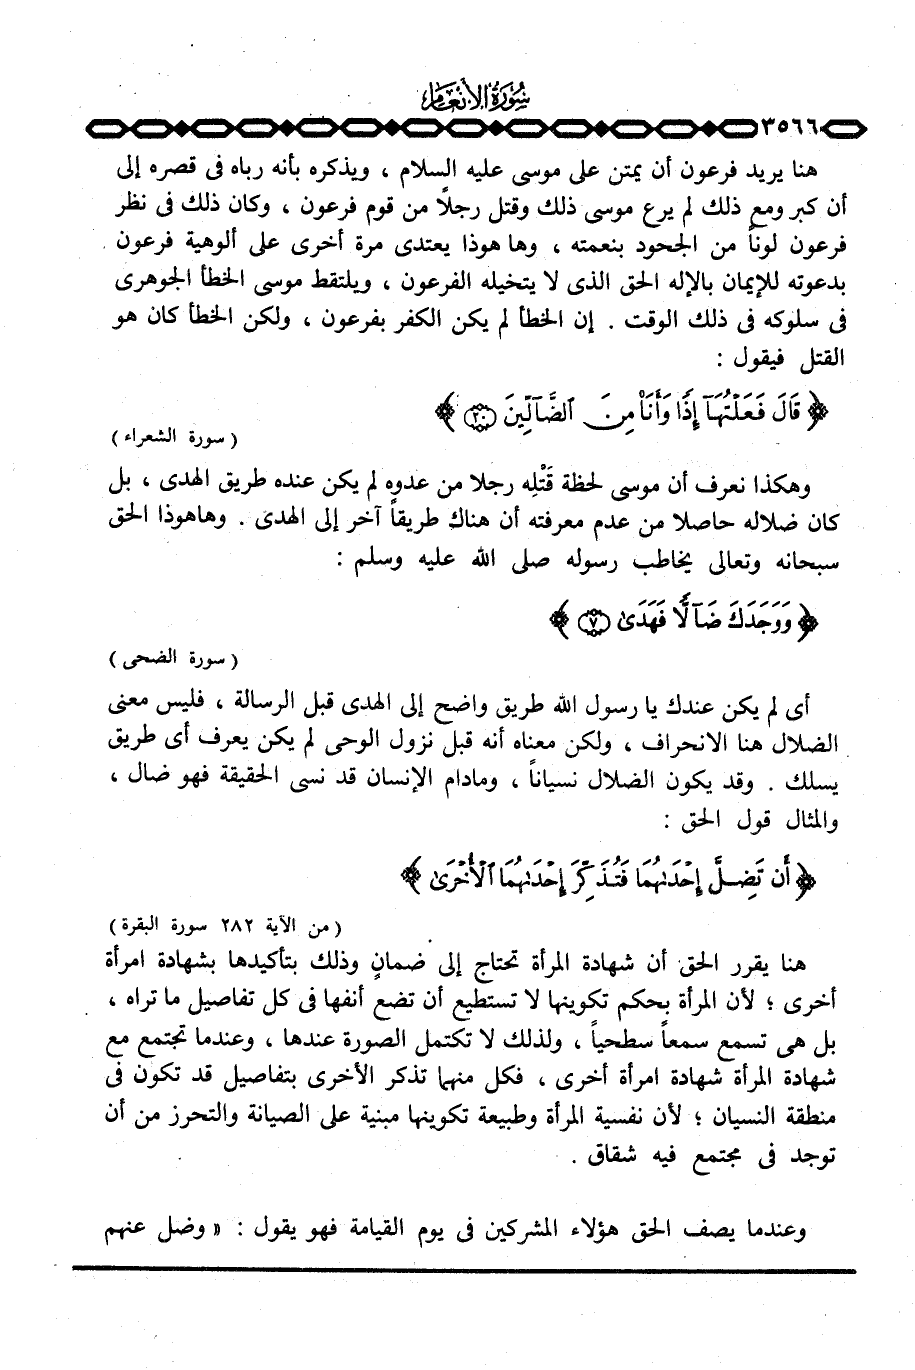 سورة الأنعام
٣٥٦٦
هنا يريد فرعون أن يمتن على موسى عليه السلام ، ويذكره بأنه رباه فى قصره إلى
أن كبر ومع ذلك لم يرع موسى ذلك وقتل رجلاً من قوم فرعون ، وكان ذلك فى نظر
فرعون لوناً من الجحود بنعمته ، وها هوذا يعتدى مرة أخرى على ألوهية فرعون
بدعوته للإيمان بالإله الحق الذى لا يتخيله الفرعون ، ويلتقط موسى الخطأ الجوهرى
فى سلوكه فى ذلك الوقت . إن الخطأ لم يكن الكفر بفرعون ، ولكن الخطأ كان هو
القتل فيقول :
﴿ قَالَ فَعَلْتُهَآ إِذًا وَأَنَا۠ مِنَ ٱلضَّآلِّينَ ٢٠ ﴾
( سورة الشعراء )
وهكذا نعرف أن موسى لحظة قَتْلِه رجلا من عدوه لم يكن عنده طريق الهدى ، بل
كان ضلاله حاصلا من عدم معرفته أن هناك طريقاً آخر إلى الهدى . وهاهوذا الحق
سبحانه وتعالى يخاطب رسوله صلى الله عليه وسلم :
﴿ وَوَجَدَكَ ضَآلًّا فَهَدَىٰ ٧ ﴾
( سورة الضحى )
أى لم يكن عندك يا رسول الله طريق واضح إلى الهدى قبل الرسالة ، فليس معنى
الضلال هنا الانحراف ، ولكن معناه أنه قبل نزول الوحى لم يكن يعرف أى طريق
يسلك . وقد يكون الضلال نسياناً ، ومادام الإنسان قد نسى الحقيقة فهو ضال ،
والمثال قول الحق :
﴿ أَن تَضِلَّ إِحْدَىٰهُمَا فَتُذَكِّرَ إِحْدَىٰهُمَا ٱلْأُخْرَىٰ ﴾
( من الآية ٢٨٢ سورة البقرة )
هنا يقرر الحق أن شهادة المرأة تحتاج إلى ضمانٍ وذلك بتأكيدها بشهادة امرأة
أخرى ؛ لأن المرأة بحكم تكوينها لا تستطيع أن تضع أنفها فى كل تفاصيل ما تراه ،
بل هى تسمع سمعاً سطحياً ، ولذلك لا تكتمل الصورة عندها ، وعندما تجتمع مع
شهادة المرأة شهادة امرأة أخرى ، فكل منهما تذكر الأخرى بتفاصيل قد تكون فى
منطقة النسيان ؛ لأن نفسية المرأة وطبيعة تكوينها مبنية على الصيانة والتحرز من أن
توجد فى مجتمع فيه شقاق .
وعندما يصف الحق هؤلاء المشركين فى يوم القيامة فهو يقول : « وضل عنهم